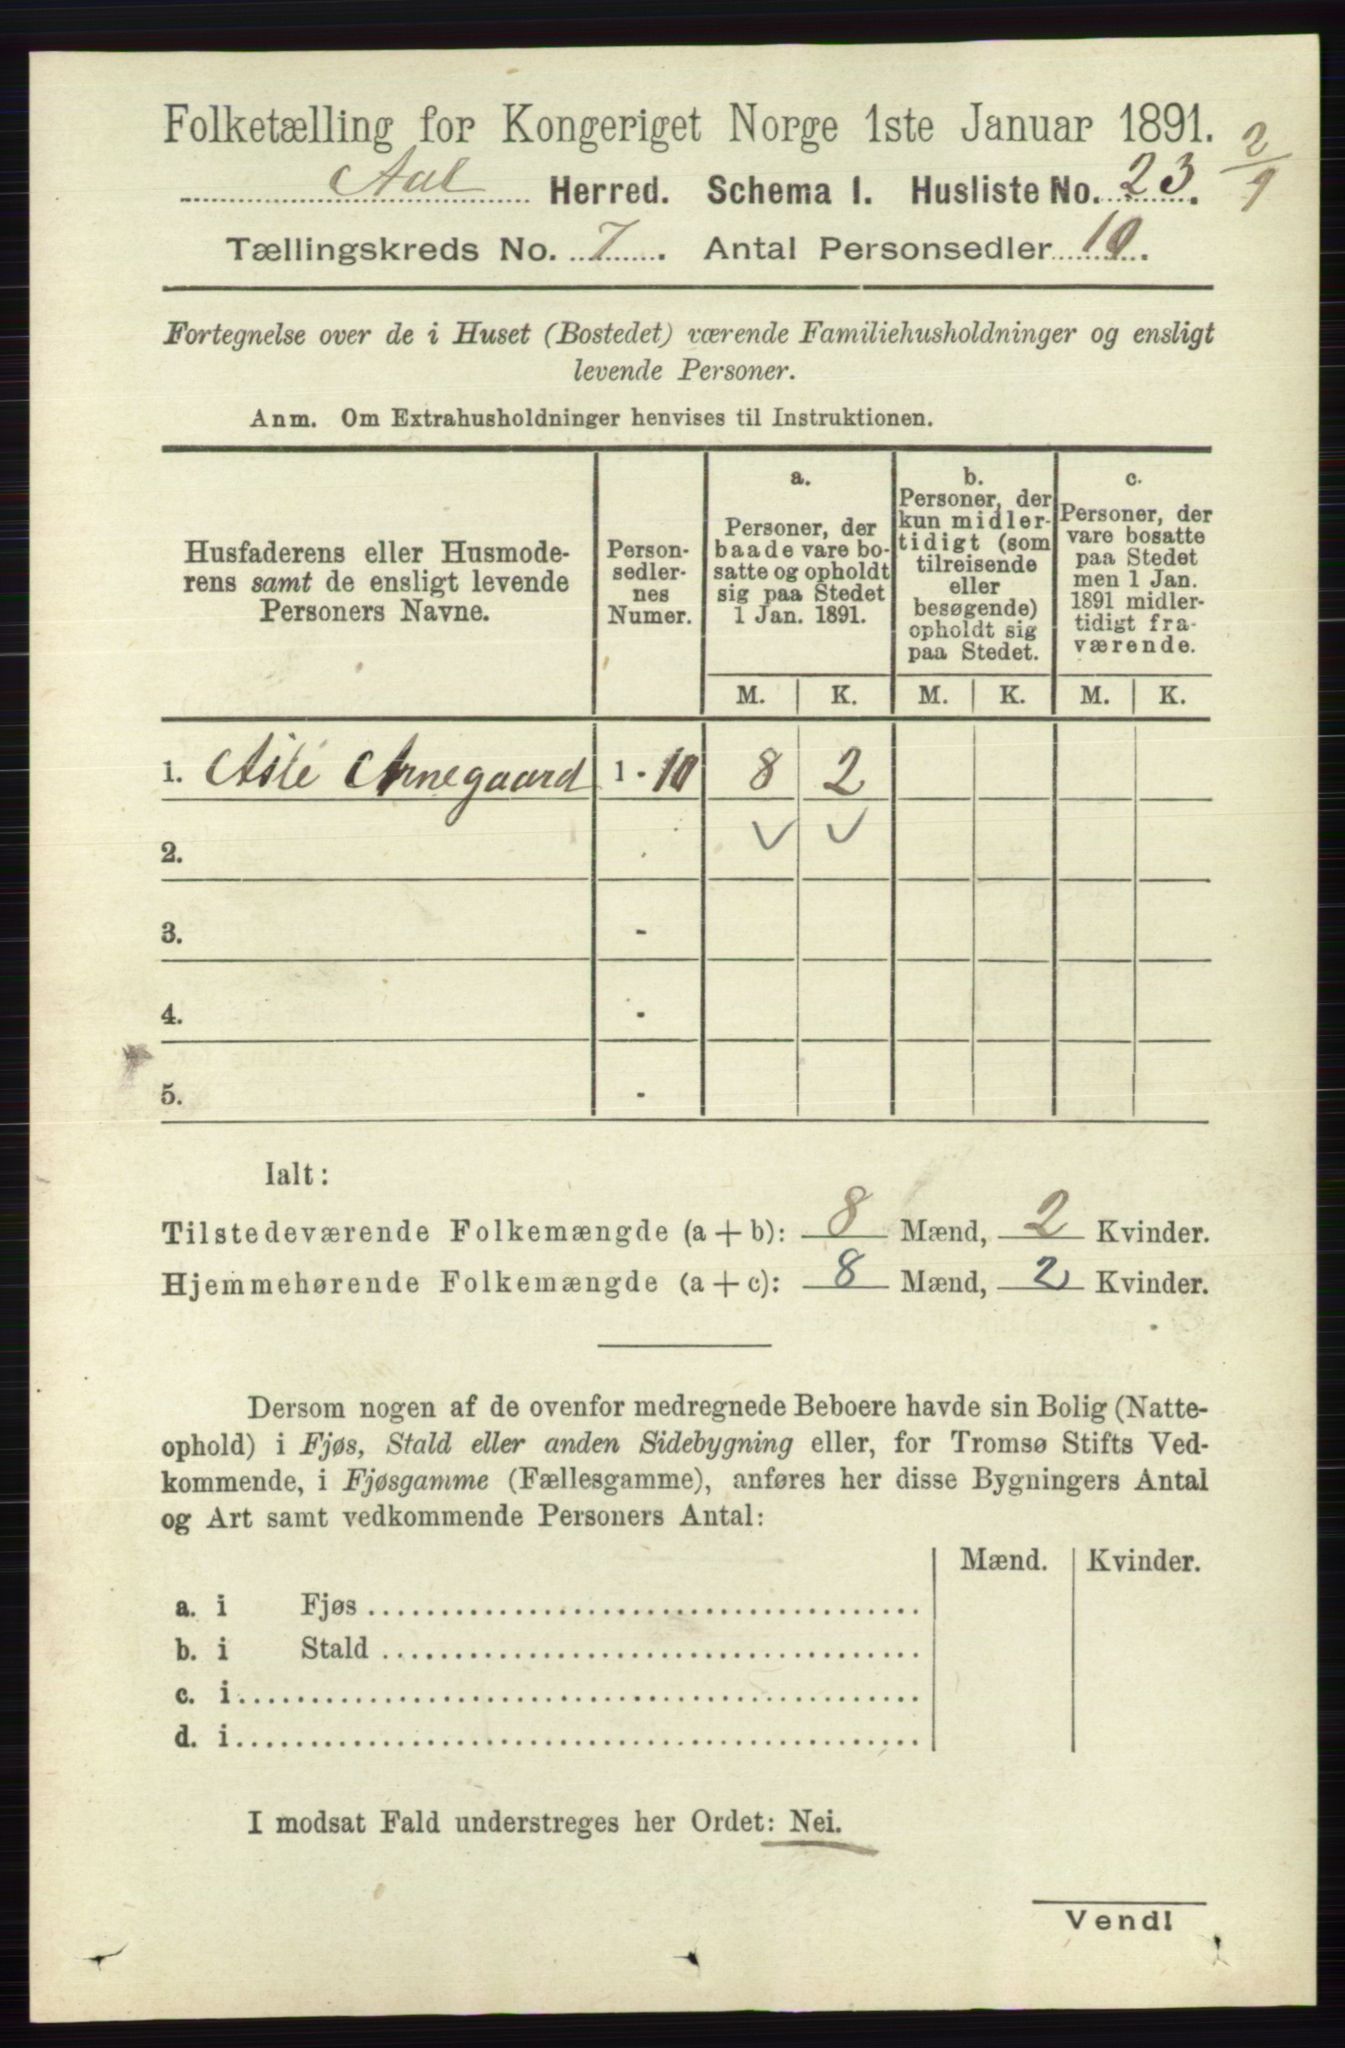 Folketælling for Kongeriget Norge 1ste Januar 1891.
Aal Herred. Schema I. Husliste No. 23. 2/9
Tællingskreds No. 7. Antal Personsedler 10.
Fortegnelse over de i Huset (Bostedet) værende Familiehusholdninger og ensligt
levende Personer.
Anm. Om Extrahusholdninger henvises til Instruktionen.
Husfaderens eller Husmode-
rens samt de ensligt levende
Personers Navne.
Person-
sedler-
nes
Numer.
a.
Personer, der
baade vare bo-
satte og opholdt
sig paa Stedet
1 Jan. 1891.
b.
Personer, der
kun midler-
tidigt (som
tilreisende
eller
besøgende)
opholdt sig
paa Stedet.
c.
Personer, der
vare bosatte
paa Stedet
men 1 Jan.
1891 midler-
tidigt fra-
værende.
M. K. M. K. M. K.
1. Asle Arnegaard 1 - 10 8 2
2.
3. -
4. -
5. -
Ialt:
Tilstedeværende Folkemængde (a + b): 8 Mænd, 2 Kvinder.
Hjemmehørende Folkemængde (a + c): 8 Mænd, 2 Kvinder.
Dersom nogen af de ovenfor medregnede Beboere havde sin Bolig (Natte-
ophold) i Fjøs, Stald eller anden Sidebygning eller, for Tromsø Stifts Ved-
kommende, i Fjøsgamme (Fællesgamme), anføres her disse Bygningers Antal
og Art samt vedkommende Personers Antal:
Mænd. Kvinder.
a. i Fjøs
b. i Stald
c. i
d. i
I modsat Fald understreges her Ordet: Nei.
Vend!